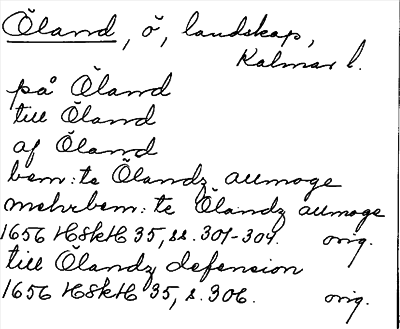 Öland, ö, landskap,
Kalmar l.
på Öland
till Öland
af Öland
bem:te Ölandz allmoge
mehrbem:te Ölandz allmoge
1656 HSkH 35, ss. 301-304. orig.
till Ölandz defension
1656 HSkH 35, s. 306. orig.